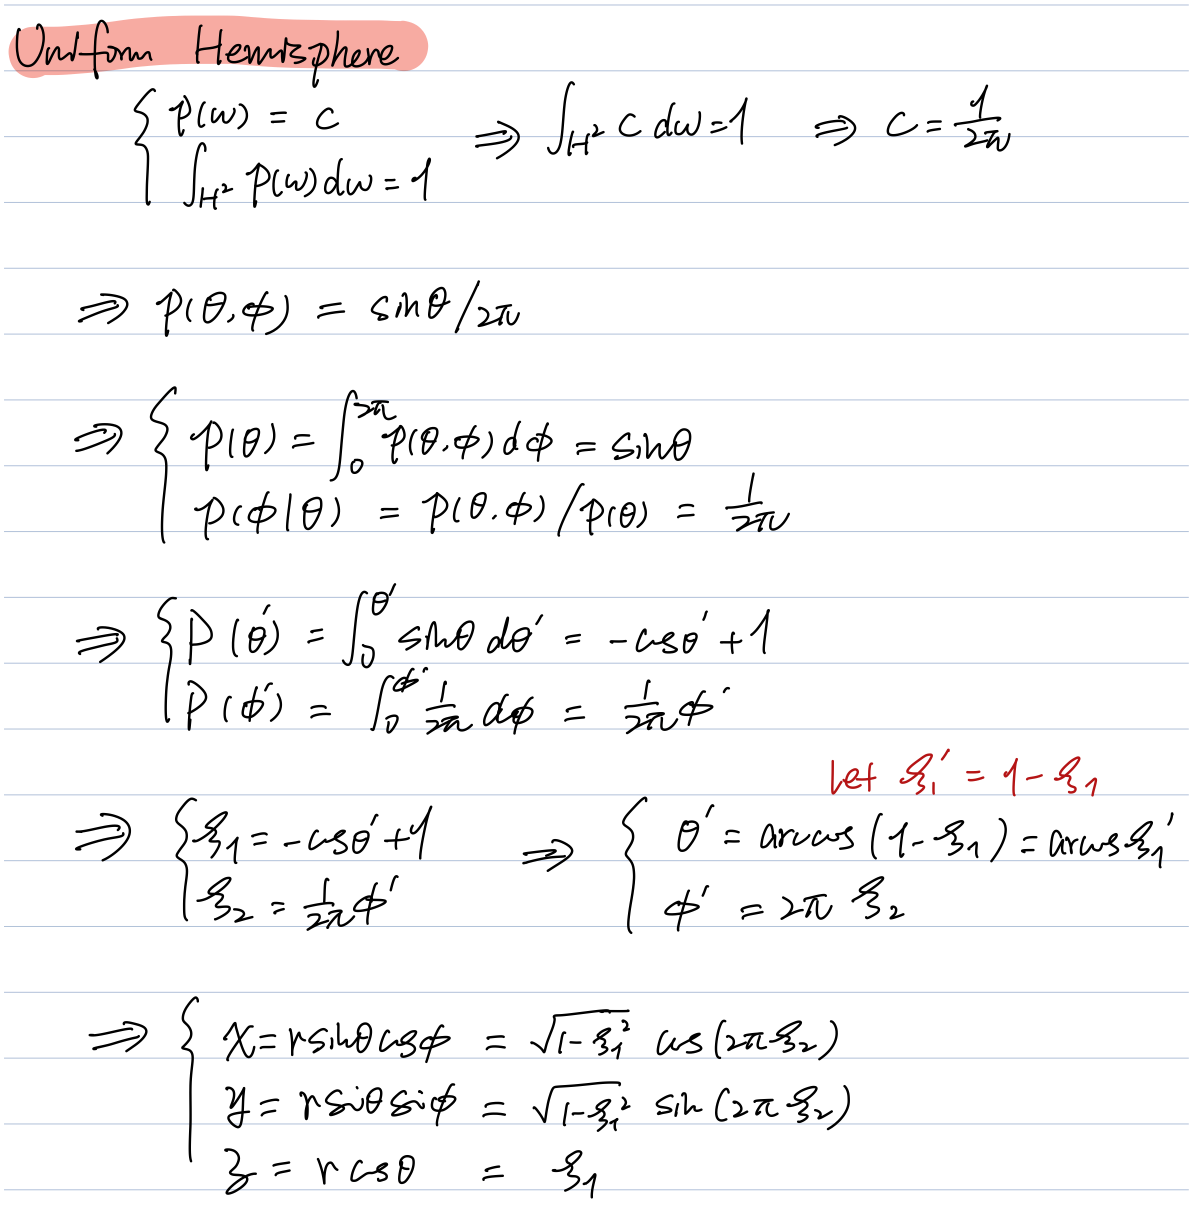 Uniform Hemisphere
{ p(ω) = c ⇒ ∫_{H²} c dω = 1 ⇒ c = 1/2π
∫_{H²} p(ω) dω = 1
⇒ p(θ,φ) = sinθ/2π
⇒ { p(θ) = ∫₀^{2π} p(θ,φ) dφ = sinθ
p(φ|θ) = p(θ,φ)/p(θ) = 1/2π
⇒ { P(θ′) = ∫₀^{θ′} sinθ dθ′ = -cosθ′ + 1
P(φ′) = ∫₀^{φ′} 1/2π dφ = 1/2π φ′
let ξ₁′ = 1 - ξ₁
⇒ { ξ₁ = -cosθ′ + 1 ⇒ { θ′ = arccos(1 - ξ₁) = arccos ξ₁′
ξ₂ = 1/2π φ′ φ′ = 2π ξ₂
⇒ { x = r sinθ cosφ = √(1-ξ₁²) cos(2πξ₂)
y = r siθ siφ = √(1-ξ₁²) sin(2πξ₂)
z = r cosθ = ξ₁